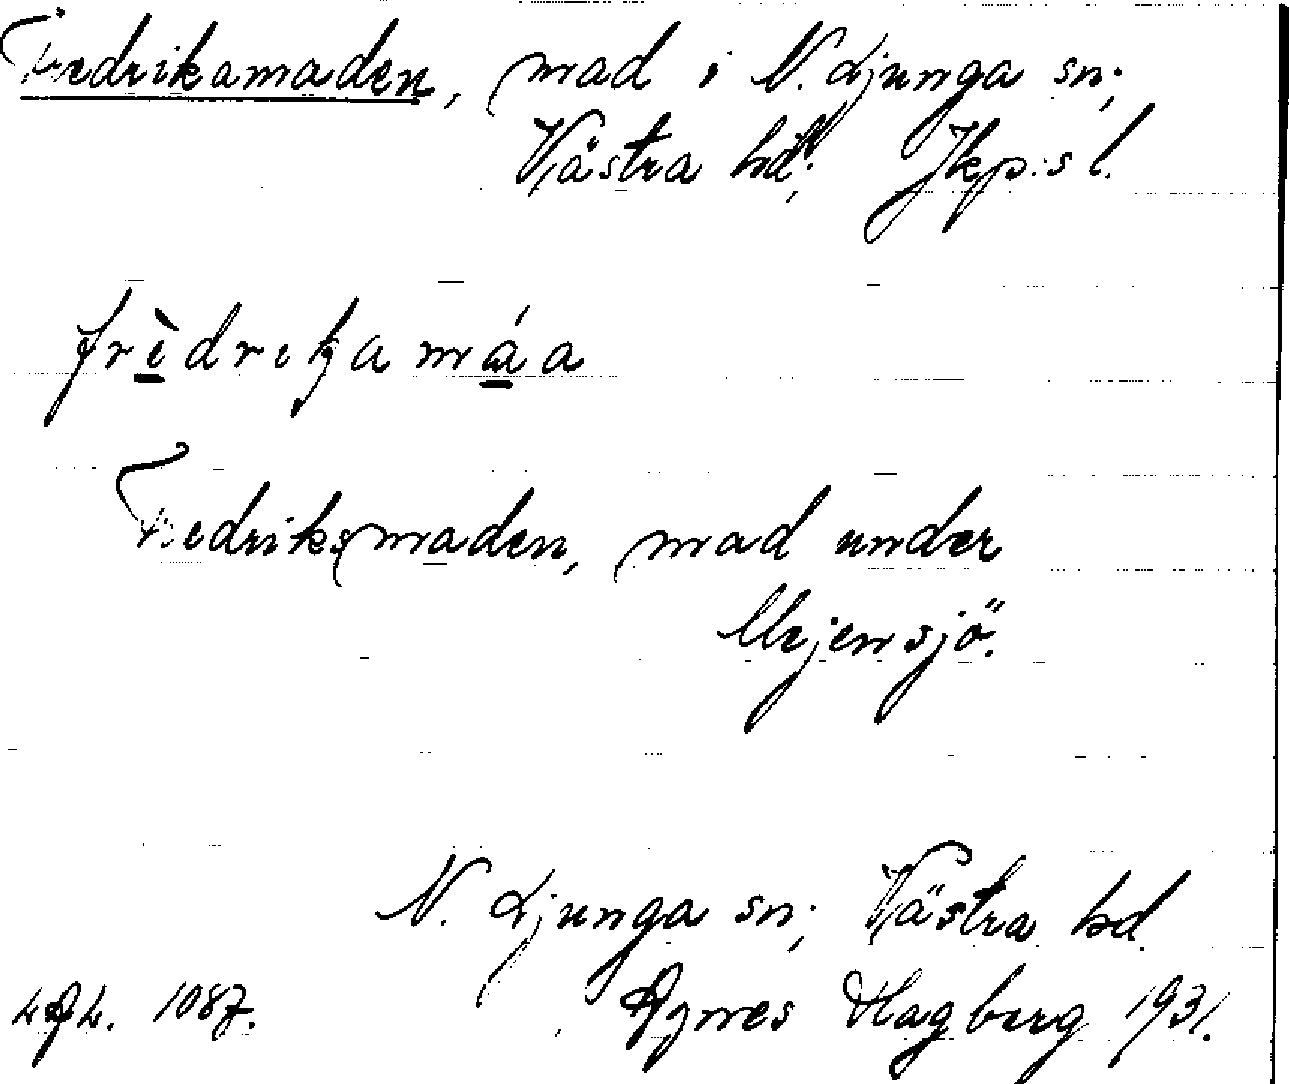 Fredrikamaden, mad i N. Ljunga sn;
Västra hd; Jkp:s l.
frèdrikamáa
Fredriksmaden, mad under
Mjensjö.
N. Ljunga sn; Västra hd.
1087. Agnes Hagberg 1931.